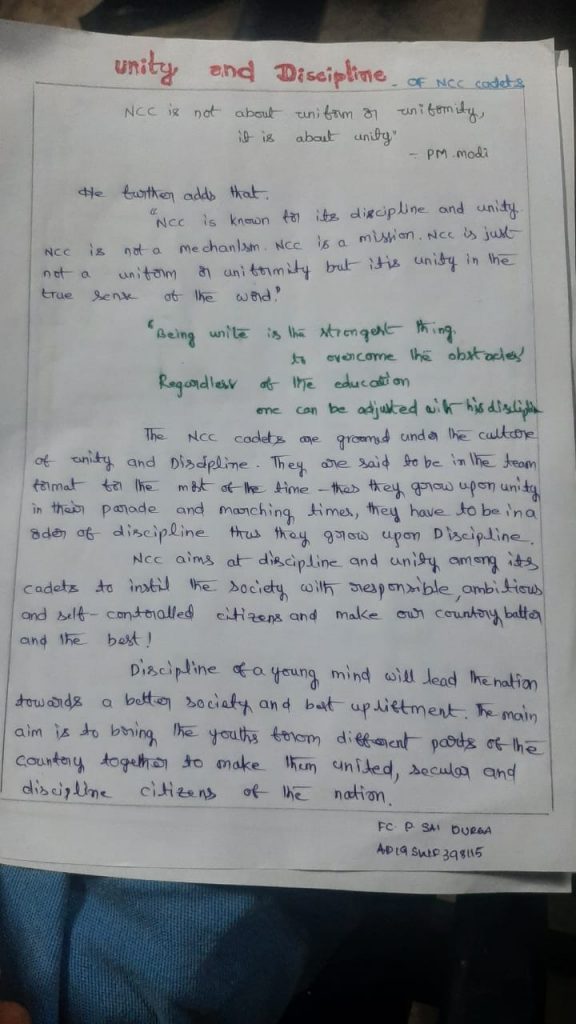 unity and Discipline - OF NCC cadets
NCC is not about uniform or uniformity,
it is about unity"
- PM.modi
He further adds that.
"NCC is known for its discipline and unity.
NCC is not a mechanism. NCC is a mission. NCC is just
not a uniform or uniformity but it is unity in the
true sense of the word."
"Being unite is the strongest thing
to overcome the obstacles'
Regardless of the education
one can be adjusted with his disciplin
The NCC cadets are groomed under the culture
of unity and Discipline. They are said to be in the team
format for the most of the time - thus they grow upon unity
in their parade and marching times, they have to be in a
order of discipline thus they grow upon Discipline.
NCC aims at discipline and unity among its
cadets to instil the society with responsible, ambitious
and self-controlled citizens and make our country batter
and the best!
Discipline of a young mind will lead the nation
towards a better society and best upliftment. The main
aim is to bring the youths from different parts of the
country together to make them united, secular and
discipline citizens of the nation.
FC P SAI DURGA
AD19SWD398115